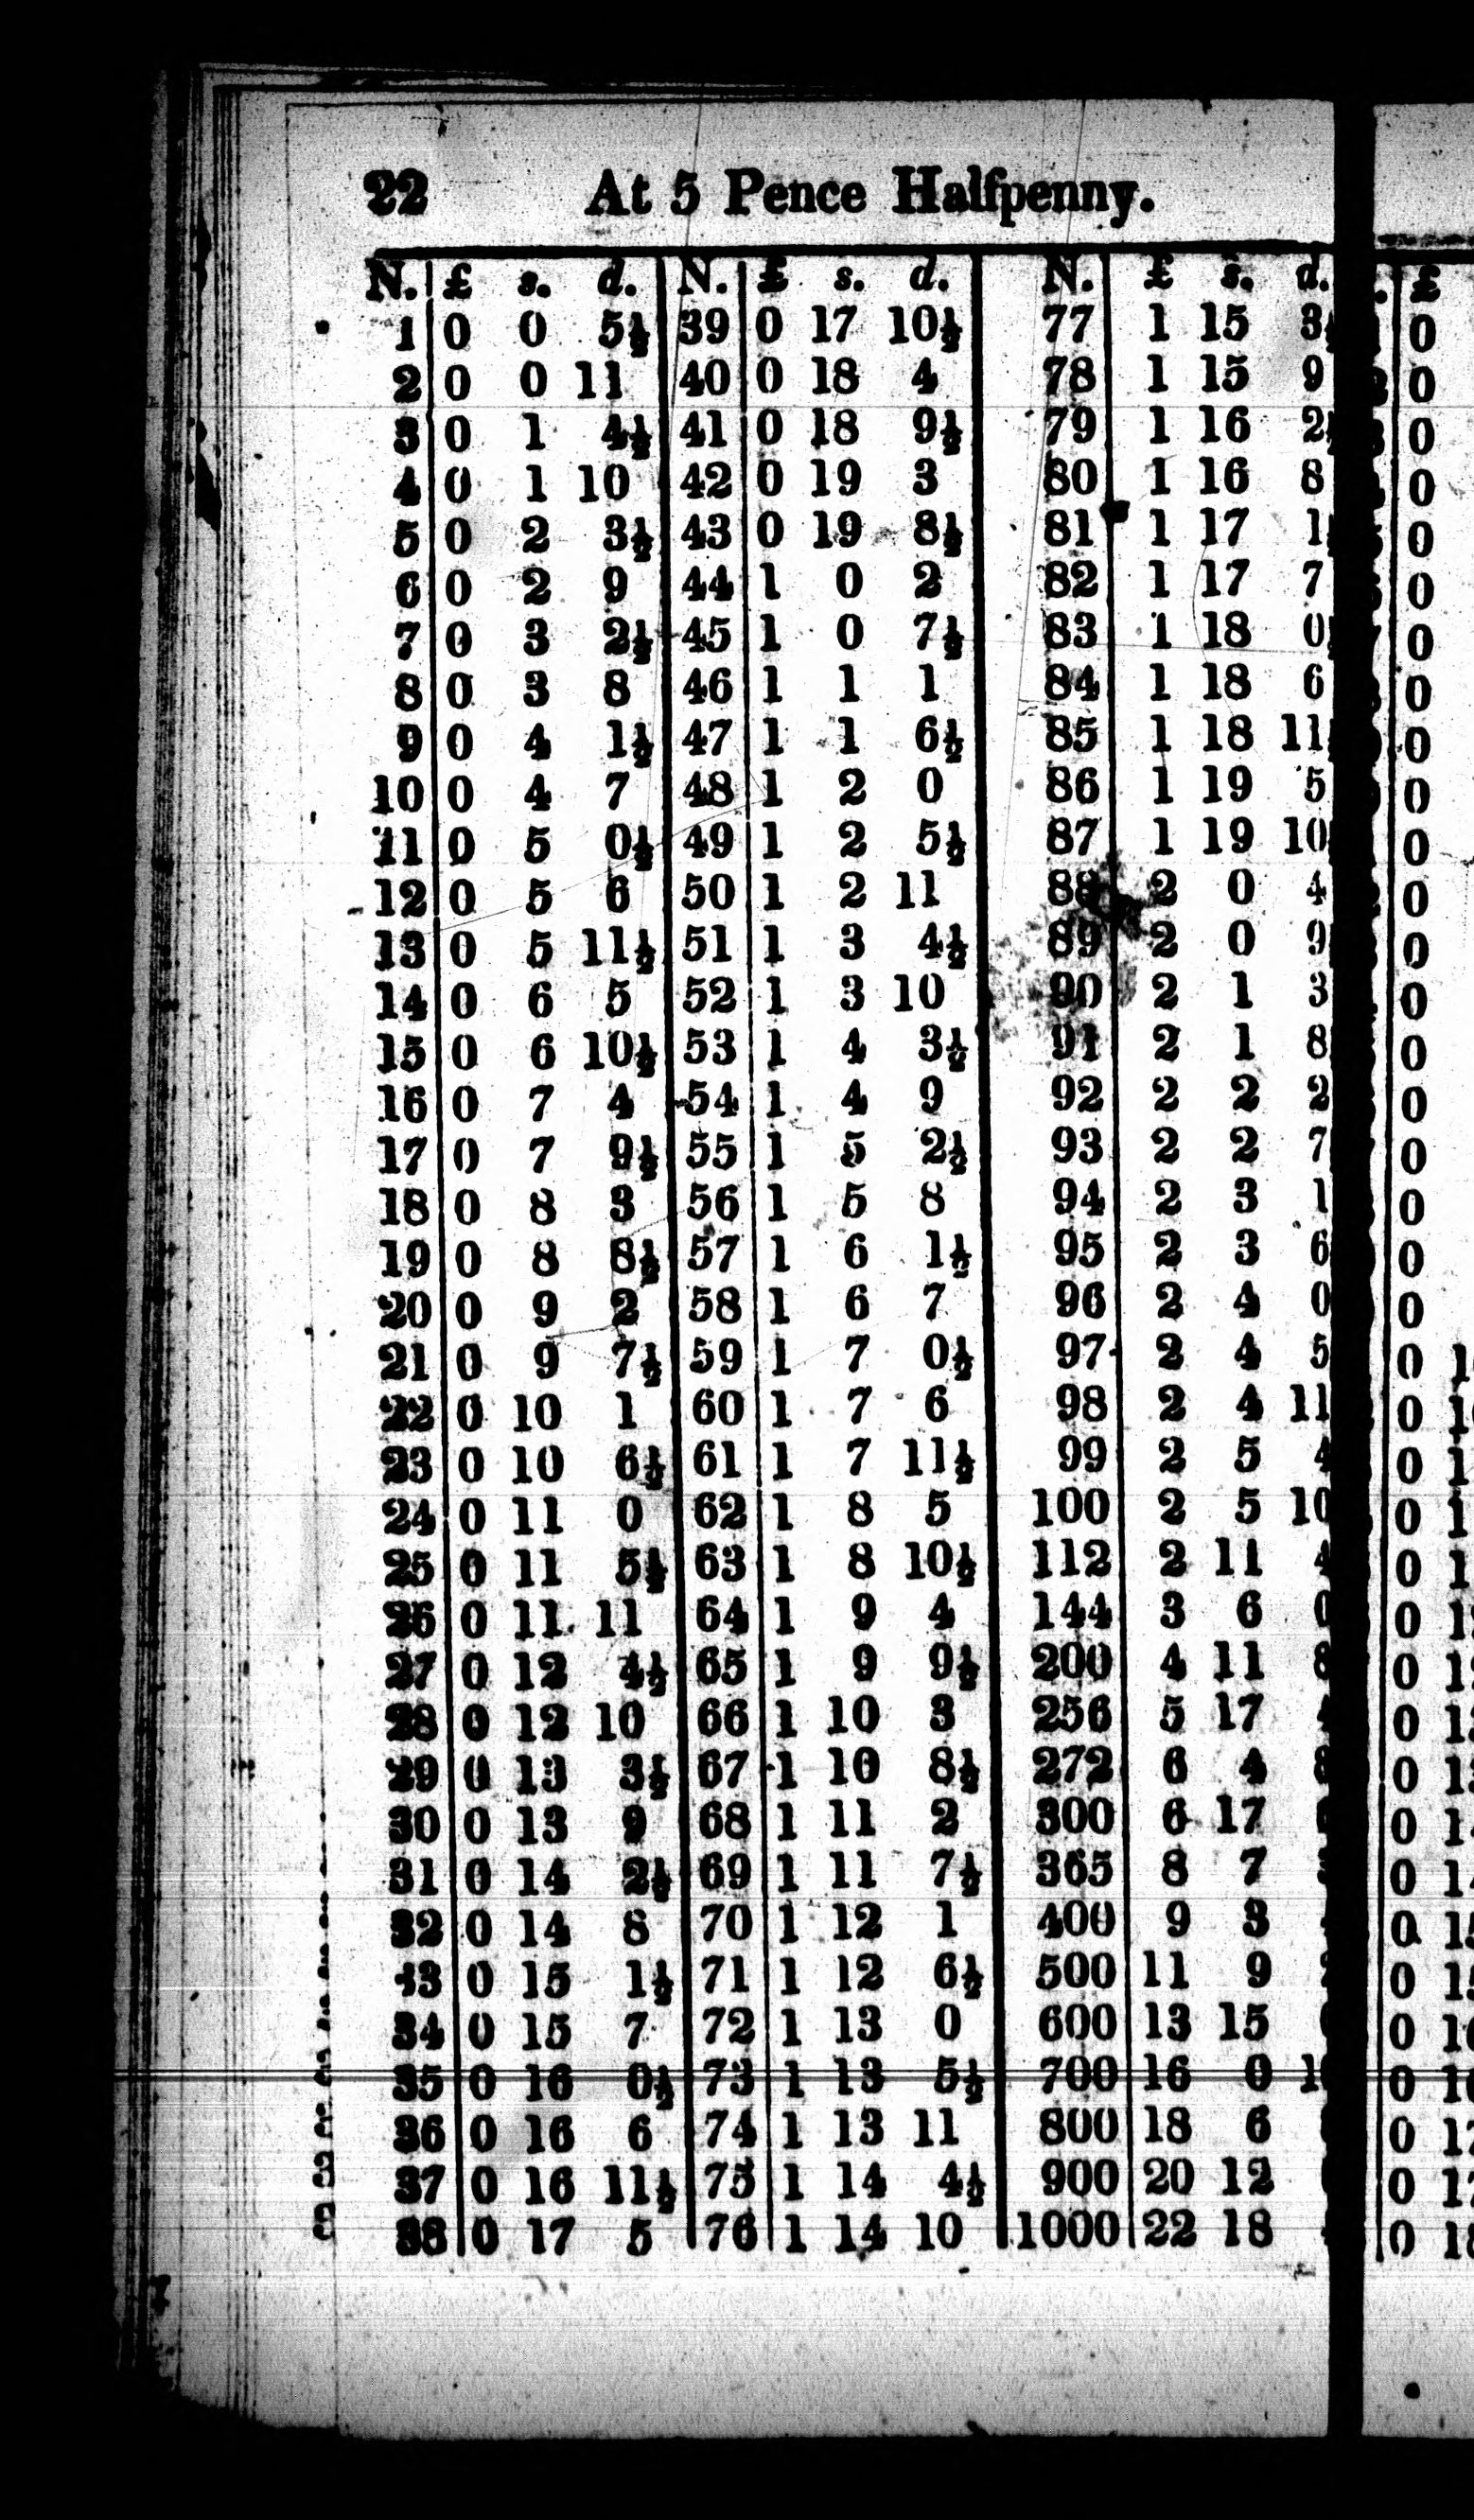 22 At 5 Pence Halfpenny.
N. £ s. d. N. £ s. d. N. £ s. d.
1 0 0 5½ 39 0 17 10½ 77 1 15 3
2 0 0 11 40 0 18 4 78 1 15 9
3 0 1 4½ 41 0 18 9½ 79 1 16 2
4 0 1 10 42 0 19 3 80 1 16 8
5 0 2 3½ 43 0 19 8½ 81 1 17 1
6 0 2 9 44 1 0 2 82 1 17 7
7 0 3 2½ 45 1 0 7½ 83 1 18 0
8 0 3 8 46 1 1 1 84 1 18 6
9 0 4 1½ 47 1 1 6½ 85 1 18 11
10 0 4 7 48 1 2 0 86 1 19 5
11 0 5 0½ 49 1 2 5½ 87 1 19 10
12 0 5 6 50 1 2 11 88 2 0 4
13 0 5 11½ 51 1 3 4½ 89 2 0 9
14 0 6 5 52 1 3 10 90 2 1 3
15 0 6 10½ 53 1 4 3½ 91 2 1 8
16 0 7 4 54 1 4 9 92 2 2 2
17 0 7 9½ 55 1 5 2½ 93 2 2 7
18 0 8 3 56 1 5 8 94 2 3 1
19 0 8 8½ 57 1 6 1½ 95 2 3 6
20 0 9 2 58 1 6 7 96 2 4 0
21 0 9 7½ 59 1 7 0½ 97 2 4 5
22 0 10 1 60 1 7 6 98 2 4 11
23 0 10 6½ 61 1 7 11½ 99 2 5 4
24 0 11 0 62 1 8 5 100 2 5 10
25 0 11 5½ 63 1 8 10½ 112 2 11 4
26 0 11 11 64 1 9 4 144 3 6 0
27 0 12 4½ 65 1 9 9½ 200 4 11 8
28 0 12 10 66 1 10 3 256 5 17 4
29 0 13 3½ 67 1 10 8½ 272 6 4 8
30 0 13 9 68 1 11 2 300 6 17
31 0 14 2½ 69 1 11 7½ 365 8 7
32 0 14 8 70 1 12 1 400 9 3
33 0 15 1½ 71 1 12 6½ 500 11 9
34 0 15 7 72 1 13 0 600 13 15
35 0 16 0½ 73 1 13 5½ 700 16 0
36 0 16 6 74 1 13 11 800 18 6
37 0 16 11½ 75 1 14 4½ 900 20 12
38 0 17 5 76 1 14 10 1000 22 18